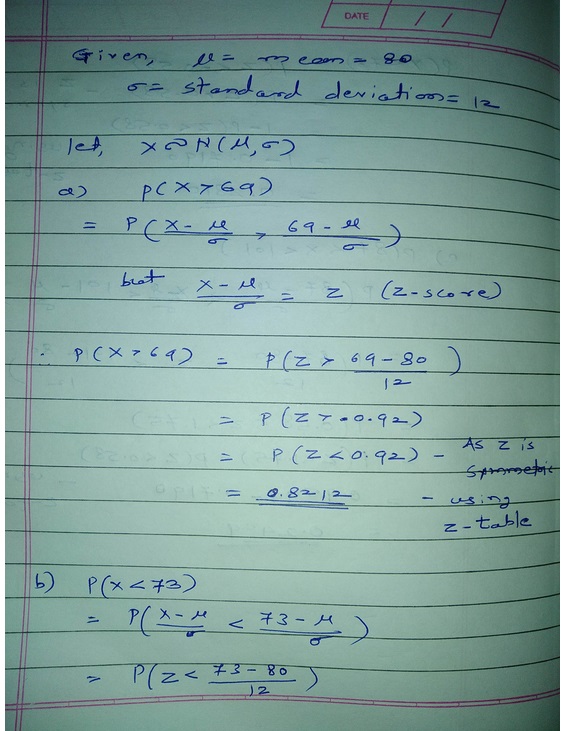 DATE / /
Given, μ = mean = 80
σ = standard deviation = 12
let, X ~ N(μ, σ)
a) P(X > 69)
= P( (X - μ)/σ > (69 - μ)/σ )
but (X - μ)/σ = Z (Z-score)
∴ P(X > 69) = P(Z > (69 - 80)/12 )
= P(Z > -0.92)
= P(Z < 0.92) - As Z is symmetric
= 0.8212 - using z-table
b) P(X < 73)
= P( (X - μ)/σ < (73 - μ)/σ )
= P(Z < (73 - 80)/12 )